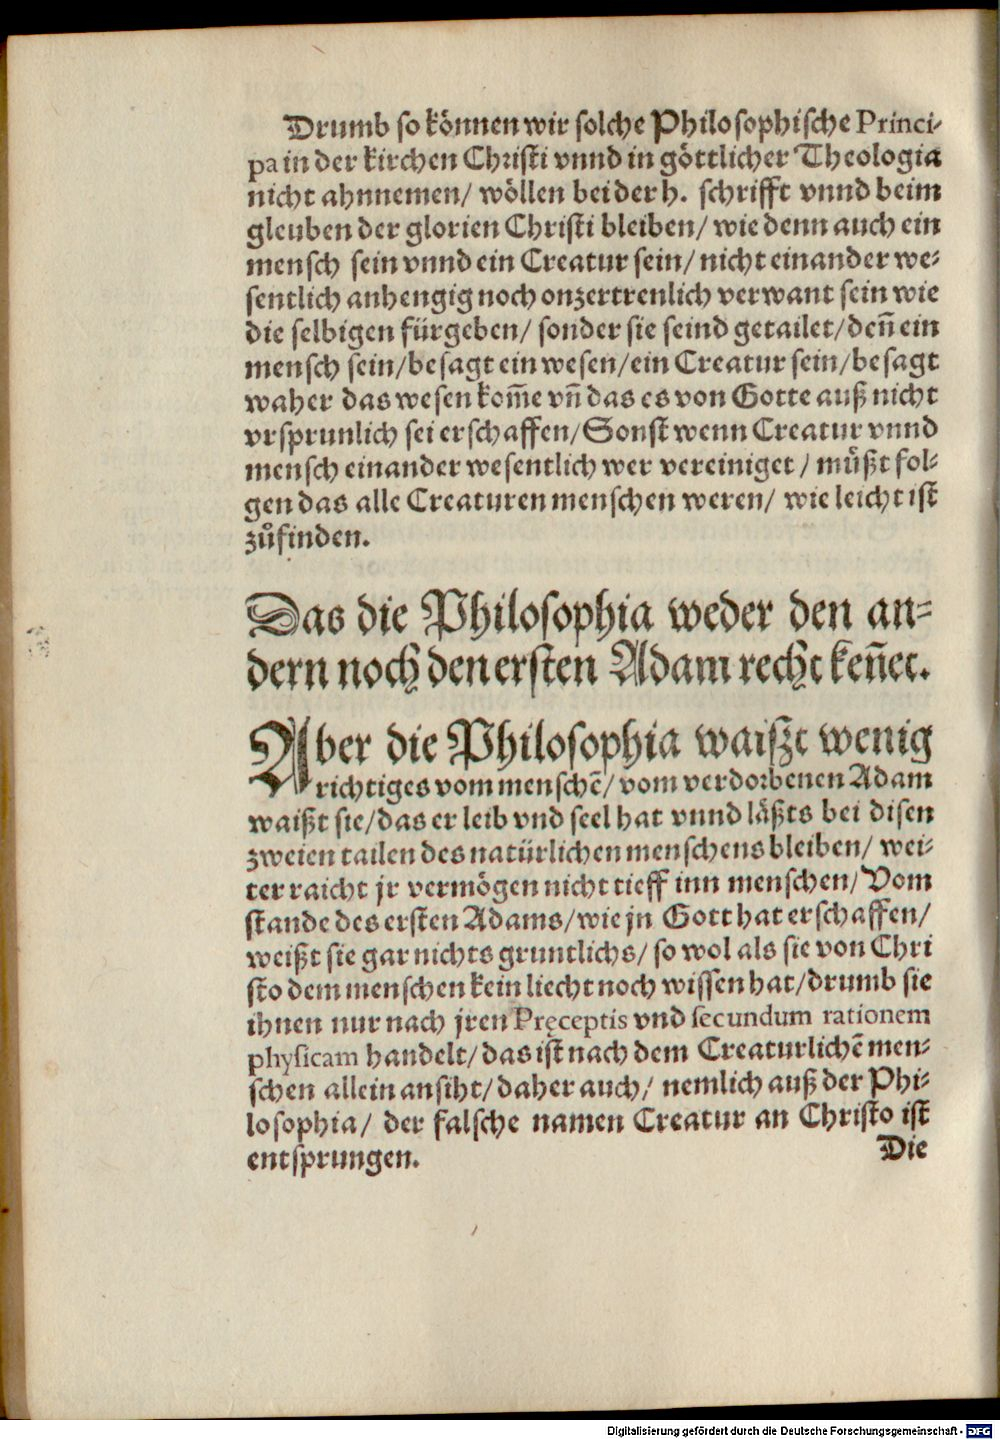 Drumb so können wir solche Philosophische Princi-
pa in der kirchen Christi vnnd in göttlicher Theologia
nicht ahnnemen/ wöllen bei der h. schrifft vnnd beim
gleuben der glorien Christi bleiben/ wie denn auch ein
mensch sein vnnd ein Creatur sein/ nicht einander we-
sentlich anhengig noch onzertrenlich verwant sein wie
die selbigen fürgeben/ sonder sie seind getailet/ deñ ein
mensch sein/ besagt ein wesen/ ein Creatur sein/ besagt
waher das wesen kom̃e vñ das es von Gotte auß nicht
vrsprunlich sei erschaffen/ Sonst wenn Creatur vnnd
mensch einander wesentlich wer vereiniget/ müßt fol-
gen das alle Creaturen menschen weren/ wie leicht ist
zůfinden.
Das die Philosophia weder den an-
dern noch den ersten Adam recht keñet.
Aber die Philosophia waißt wenig
richtiges vom menschẽ/ vom verdorbenen Adam
waißt sie/ das er leib vnd seel hat vnnd läßts bei disen
zweien tailen des natürlichen menschens bleiben/ wei-
ter raicht jr vermögen nicht tieff inn menschen/ Vom
stande des ersten Adams/ wie jn Gott hat erschaffen/
weißt sie gar nichts gruntlichs/ so wol als sie von Chri
sto dem menschen kein liecht noch wissen hat/ drumb sie
ihnen nur nach jren Pręceptis vnd secundum rationem
physicam handelt/ das ist nach dem Creaturlichẽ men-
schen allein ansiht/ daher auch/ nemlich auß der Phi-
losophia/ der falsche namen Creatur an Christo ist
entsprungen.
Die
Digitalisierung gefördert durch die Deutsche Forschungsgemeinschaft - DFG